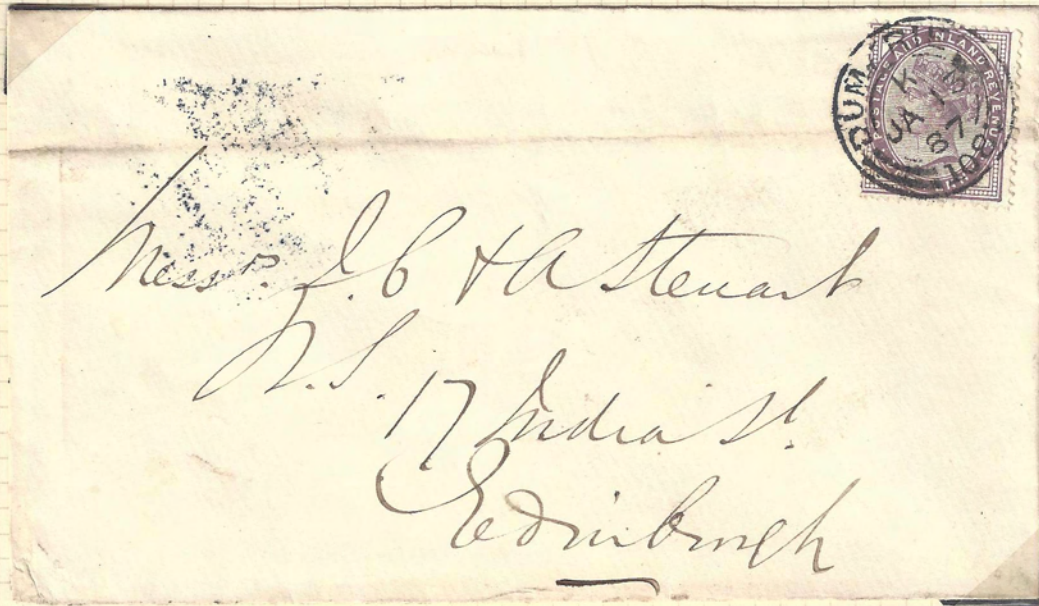 POSTAGE AND INLAND REVENUE
K
JA 13
87
108
Messrs. J. C & A Stewart
17 India St.
Edinburgh